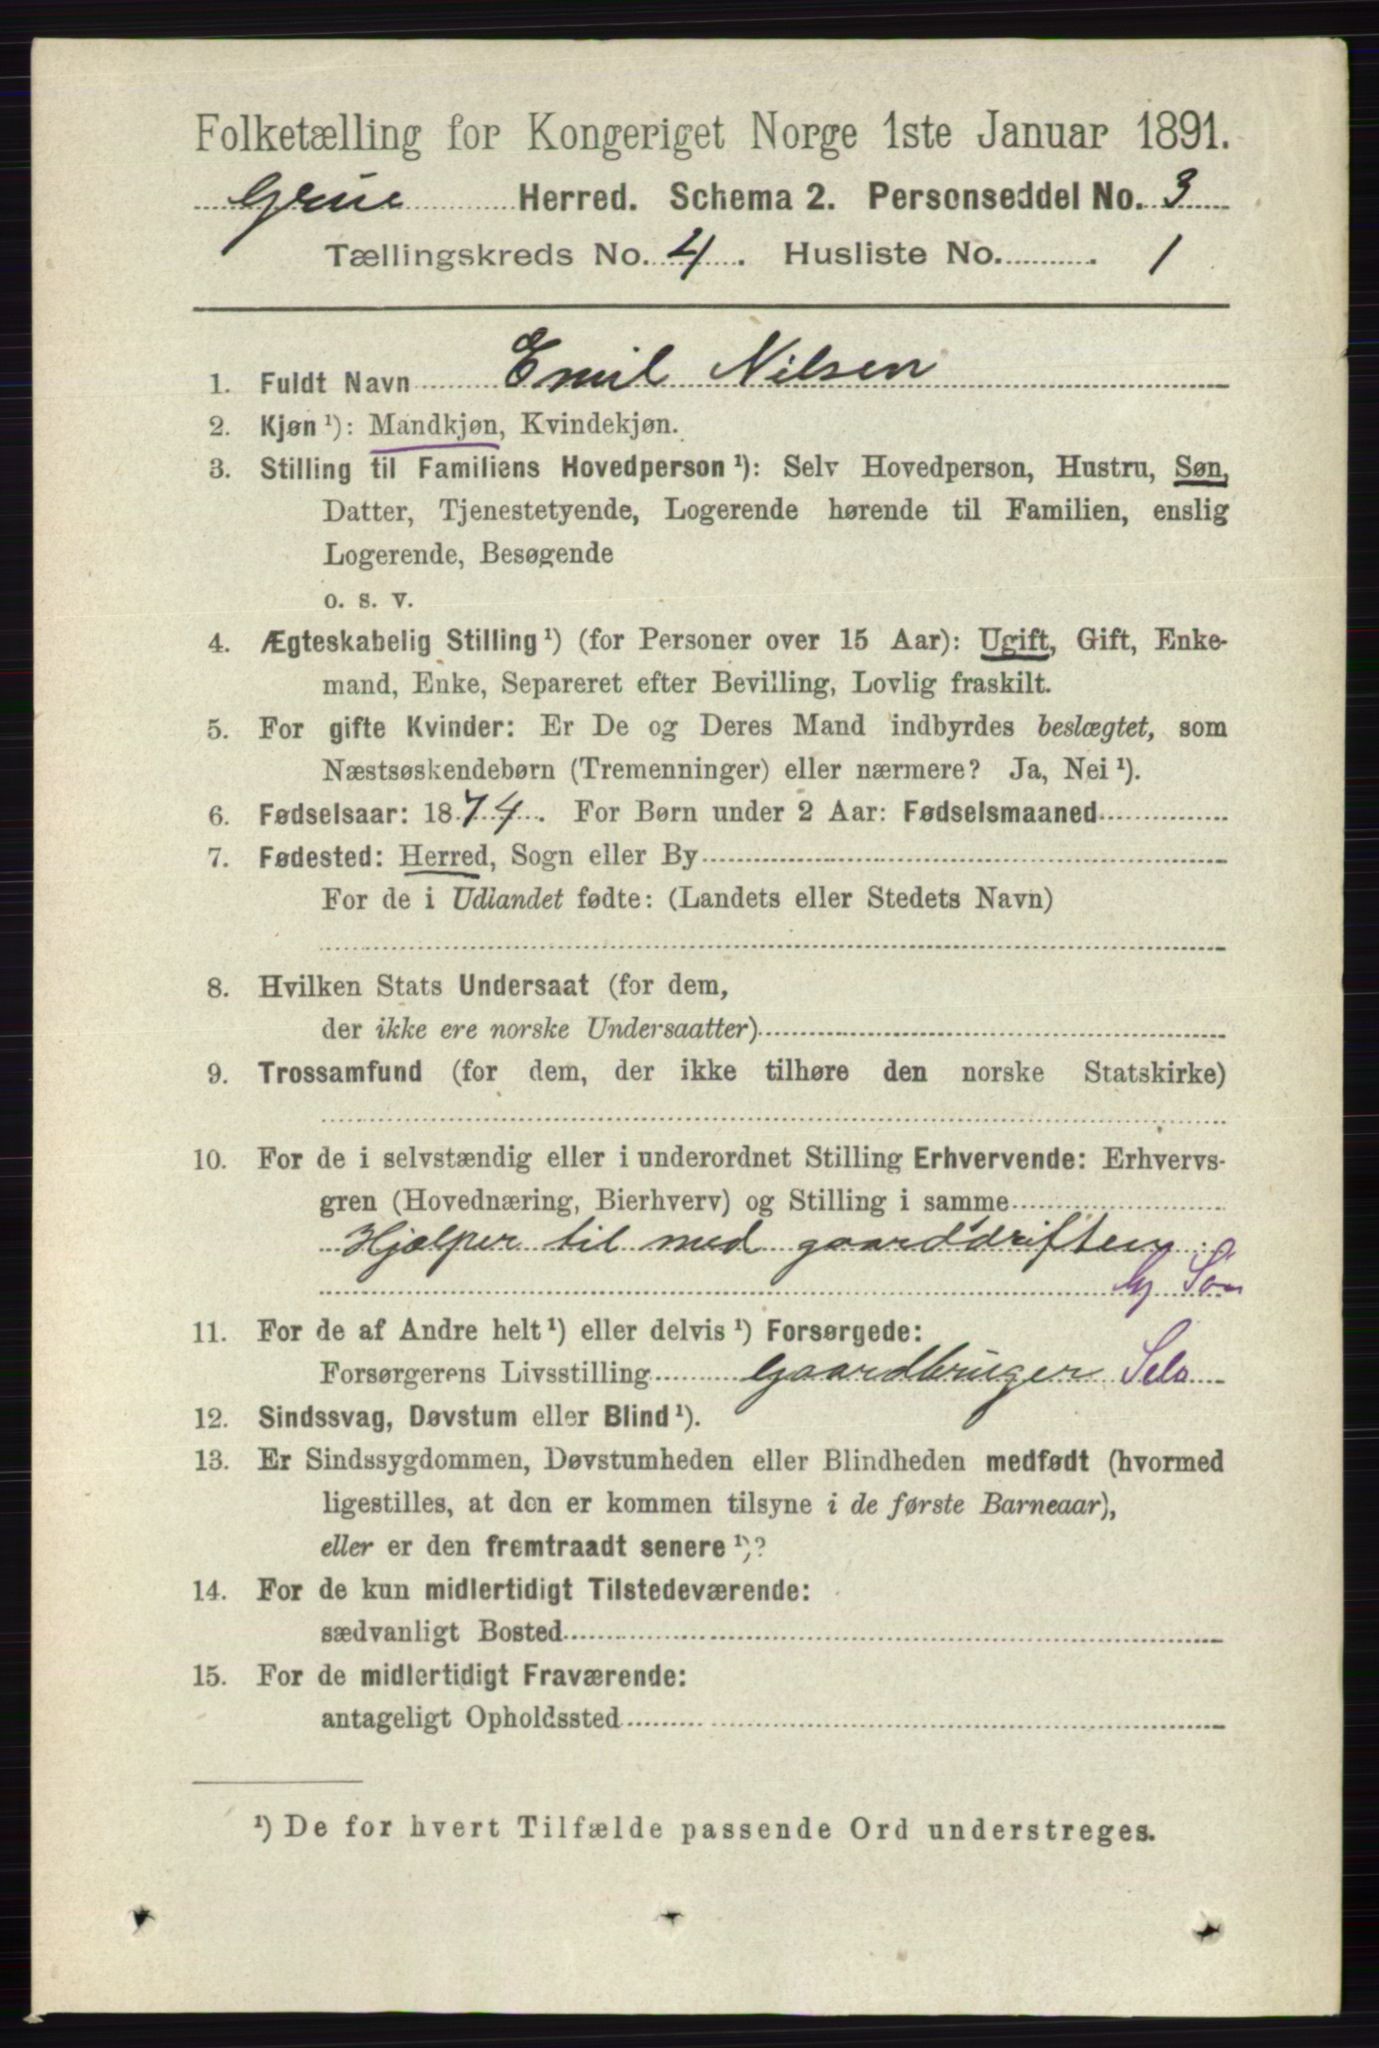 Folketælling for Kongeriget Norge 1ste Januar 1891.
Grue Herred. Schema 2. Personseddel No. 3
Tællingskreds No. 4. Husliste No. 1
1. Fuldt Navn Emil Nilsen
2. Kjøn ¹): Mandkjøn, Kvindekjøn.
3. Stilling til Familiens Hovedperson ¹): Selv Hovedperson, Hustru, Søn,
Datter, Tjenestetyende, Logerende hørende til Familien, enslig
Logerende, Besøgende
o. s. v.
4. Ægteskabelig Stilling ¹) (for Personer over 15 Aar): Ugift, Gift, Enke-
mand, Enke, Separeret efter Bevilling, Lovlig fraskilt.
5. For gifte Kvinder: Er De og Deres Mand indbyrdes beslægtet, som
Næstsøskendebørn (Tremenninger) eller nærmere? Ja, Nei ¹).
6. Fødselsaar: 1874. For Børn under 2 Aar: Fødselsmaaned
7. Fødested: Herred, Sogn eller By
For de i Udlandet fødte: (Landets eller Stedets Navn)
8. Hvilken Stats Undersaat (for dem,
der ikke ere norske Undersaatter)
9. Trossamfund (for dem, der ikke tilhøre den norske Statskirke)
10. For de i selvstændig eller i underordnet Stilling Erhvervende: Erhvervs-
gren (Hovednæring, Bierhverv) og Stilling i samme
Hjælper til med gaarddriften
Søn
11. For de af Andre helt ¹) eller delvis ¹) Forsørgede:
Forsørgerens Livsstilling Gaardbruger Selv
12. Sindssvag, Døvstum eller Blind ¹).
13. Er Sindssygdommen, Døvstumheden eller Blindheden medfødt (hvormed
ligestilles, at den er kommen tilsyne i de første Barneaar),
eller er den fremtraadt senere ¹)?
14. For de kun midlertidigt Tilstedeværende:
sædvanligt Bosted
15. For de midlertidigt Fraværende:
antageligt Opholdssted
¹) De for hvert Tilfælde passende Ord understreges.